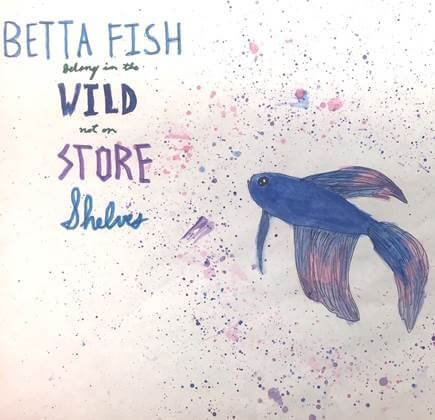 BETTA FISH
belong in the
WILD
not on
STORE
Shelves